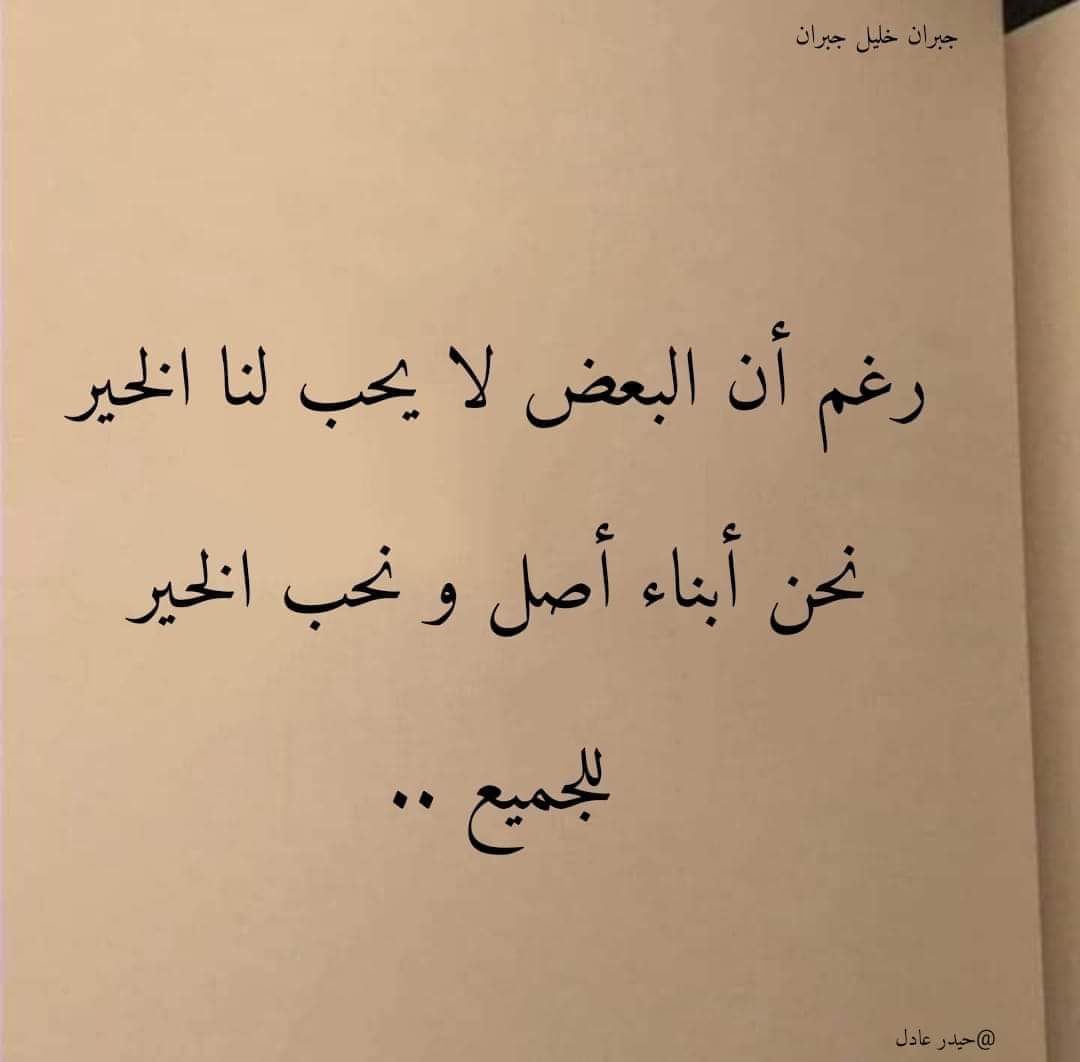 جبران خليل جبران
رغم أن البعض لا يحب لنا الخير
نحن أبناء أصل و نحب الخير
للجميع ..
@حيدر عادل